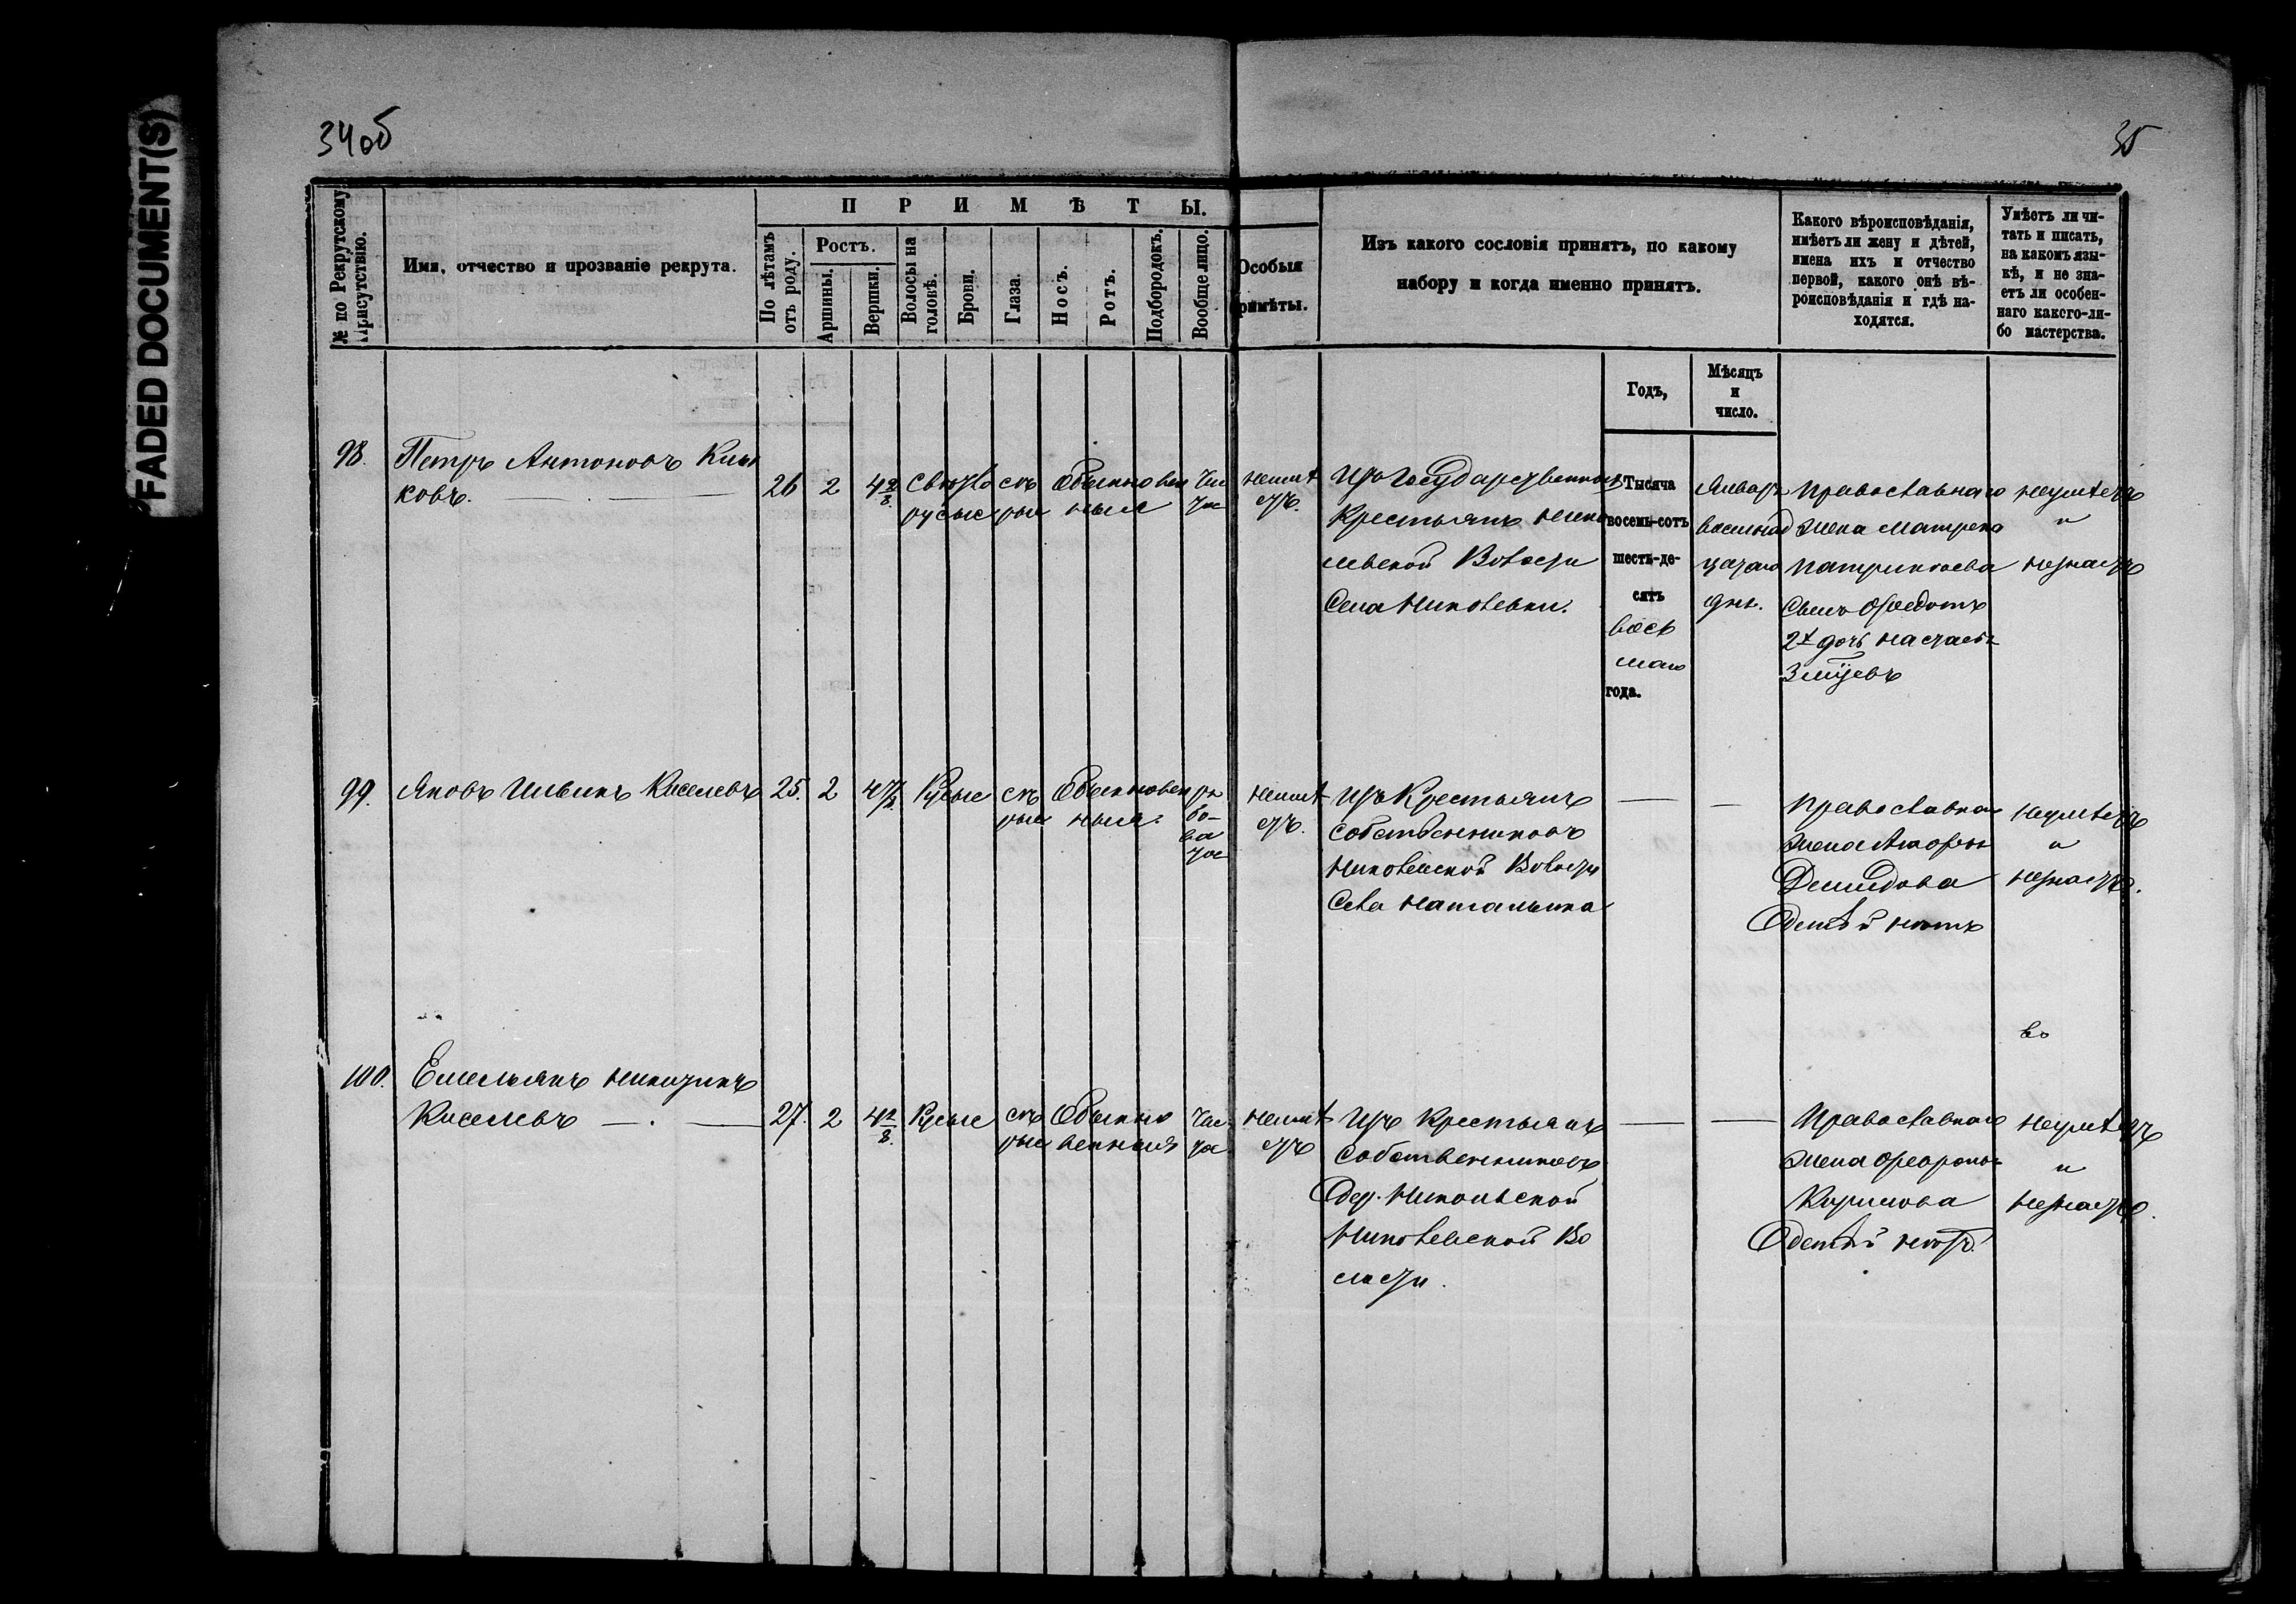 FADED DOCUMENT(S)
34об
35
№ по Рекрутскому Присутствію.
Имя, отчество и прозваніе рекрута.
ПРИМѢТЫ.
По лѣтамъ отъ роду.
Ростъ.
Аршины.
Вершки.
Волосы на головѣ.
Брови.
Глаза.
Носъ.
Ротъ.
Подбородокъ.
Вообще лицо.
Особыя
примѣты.
Изъ какого сословія принятъ, по какому
набору и когда именно принятъ.
Какого вѣроисповѣданія,
имѣетъ ли жену и дѣтей,
имена ихъ и отчество
первой, какого онѣ вѣ-
роисповѣданія и гдѣ на-
ходятся.
Умѣетъ ли чи-
тать и писать,
на какомъ язы-
кѣ, и не зна-
етъ ли особен-
наго какого-ли-
бо мастерства.
Годъ,
Мѣсяцъ
и
число.
98.
Петръ Антоновъ
ковъ.
26
2
4 2/8
Свѣтло
русые
сѣ
рые
Обыкновен
ные
Чис
тое
неимѣ
етъ.
Изъ Государственныхъ
Крестьянъ
Волости
Села
Тысяча
восемь-сотъ
шесть-де-
сятъ
вось
маго
года.
Января
восемнад
цатаго
дня.
Православнаго
Жена Матрена
Сынъ Федотъ
2х дочь Настасья
3 мѣсяцевъ
неумѣетъ
и
незнаетъ
99.
Яковъ Ильинъ Киселевъ
25.
2
4
Русые
сѣ
рые
Обыкновен
ныя
ря
бо-
ва
тое
неимѣ
етъ.
Изъ Крестьянъ
собственниковъ
Волости
Села Натальина
Православнаго
Жена
Демидова
Детѣй нѣтъ
неумѣетъ
и
незнаетъ.
во
100.
Емельянъ Никитинъ
Киселевъ
27.
2
4 2/8
Русые
сѣ
рые
Обыкно
венныя
Чис
тое
неимѣ
етъ
Изъ Крестьянъ
Собственниковъ
Дер. Никольской
Во
лости.
Православнаго
Жена
Детѣй нѣтъ.
неумѣетъ
и
незнаетъ.